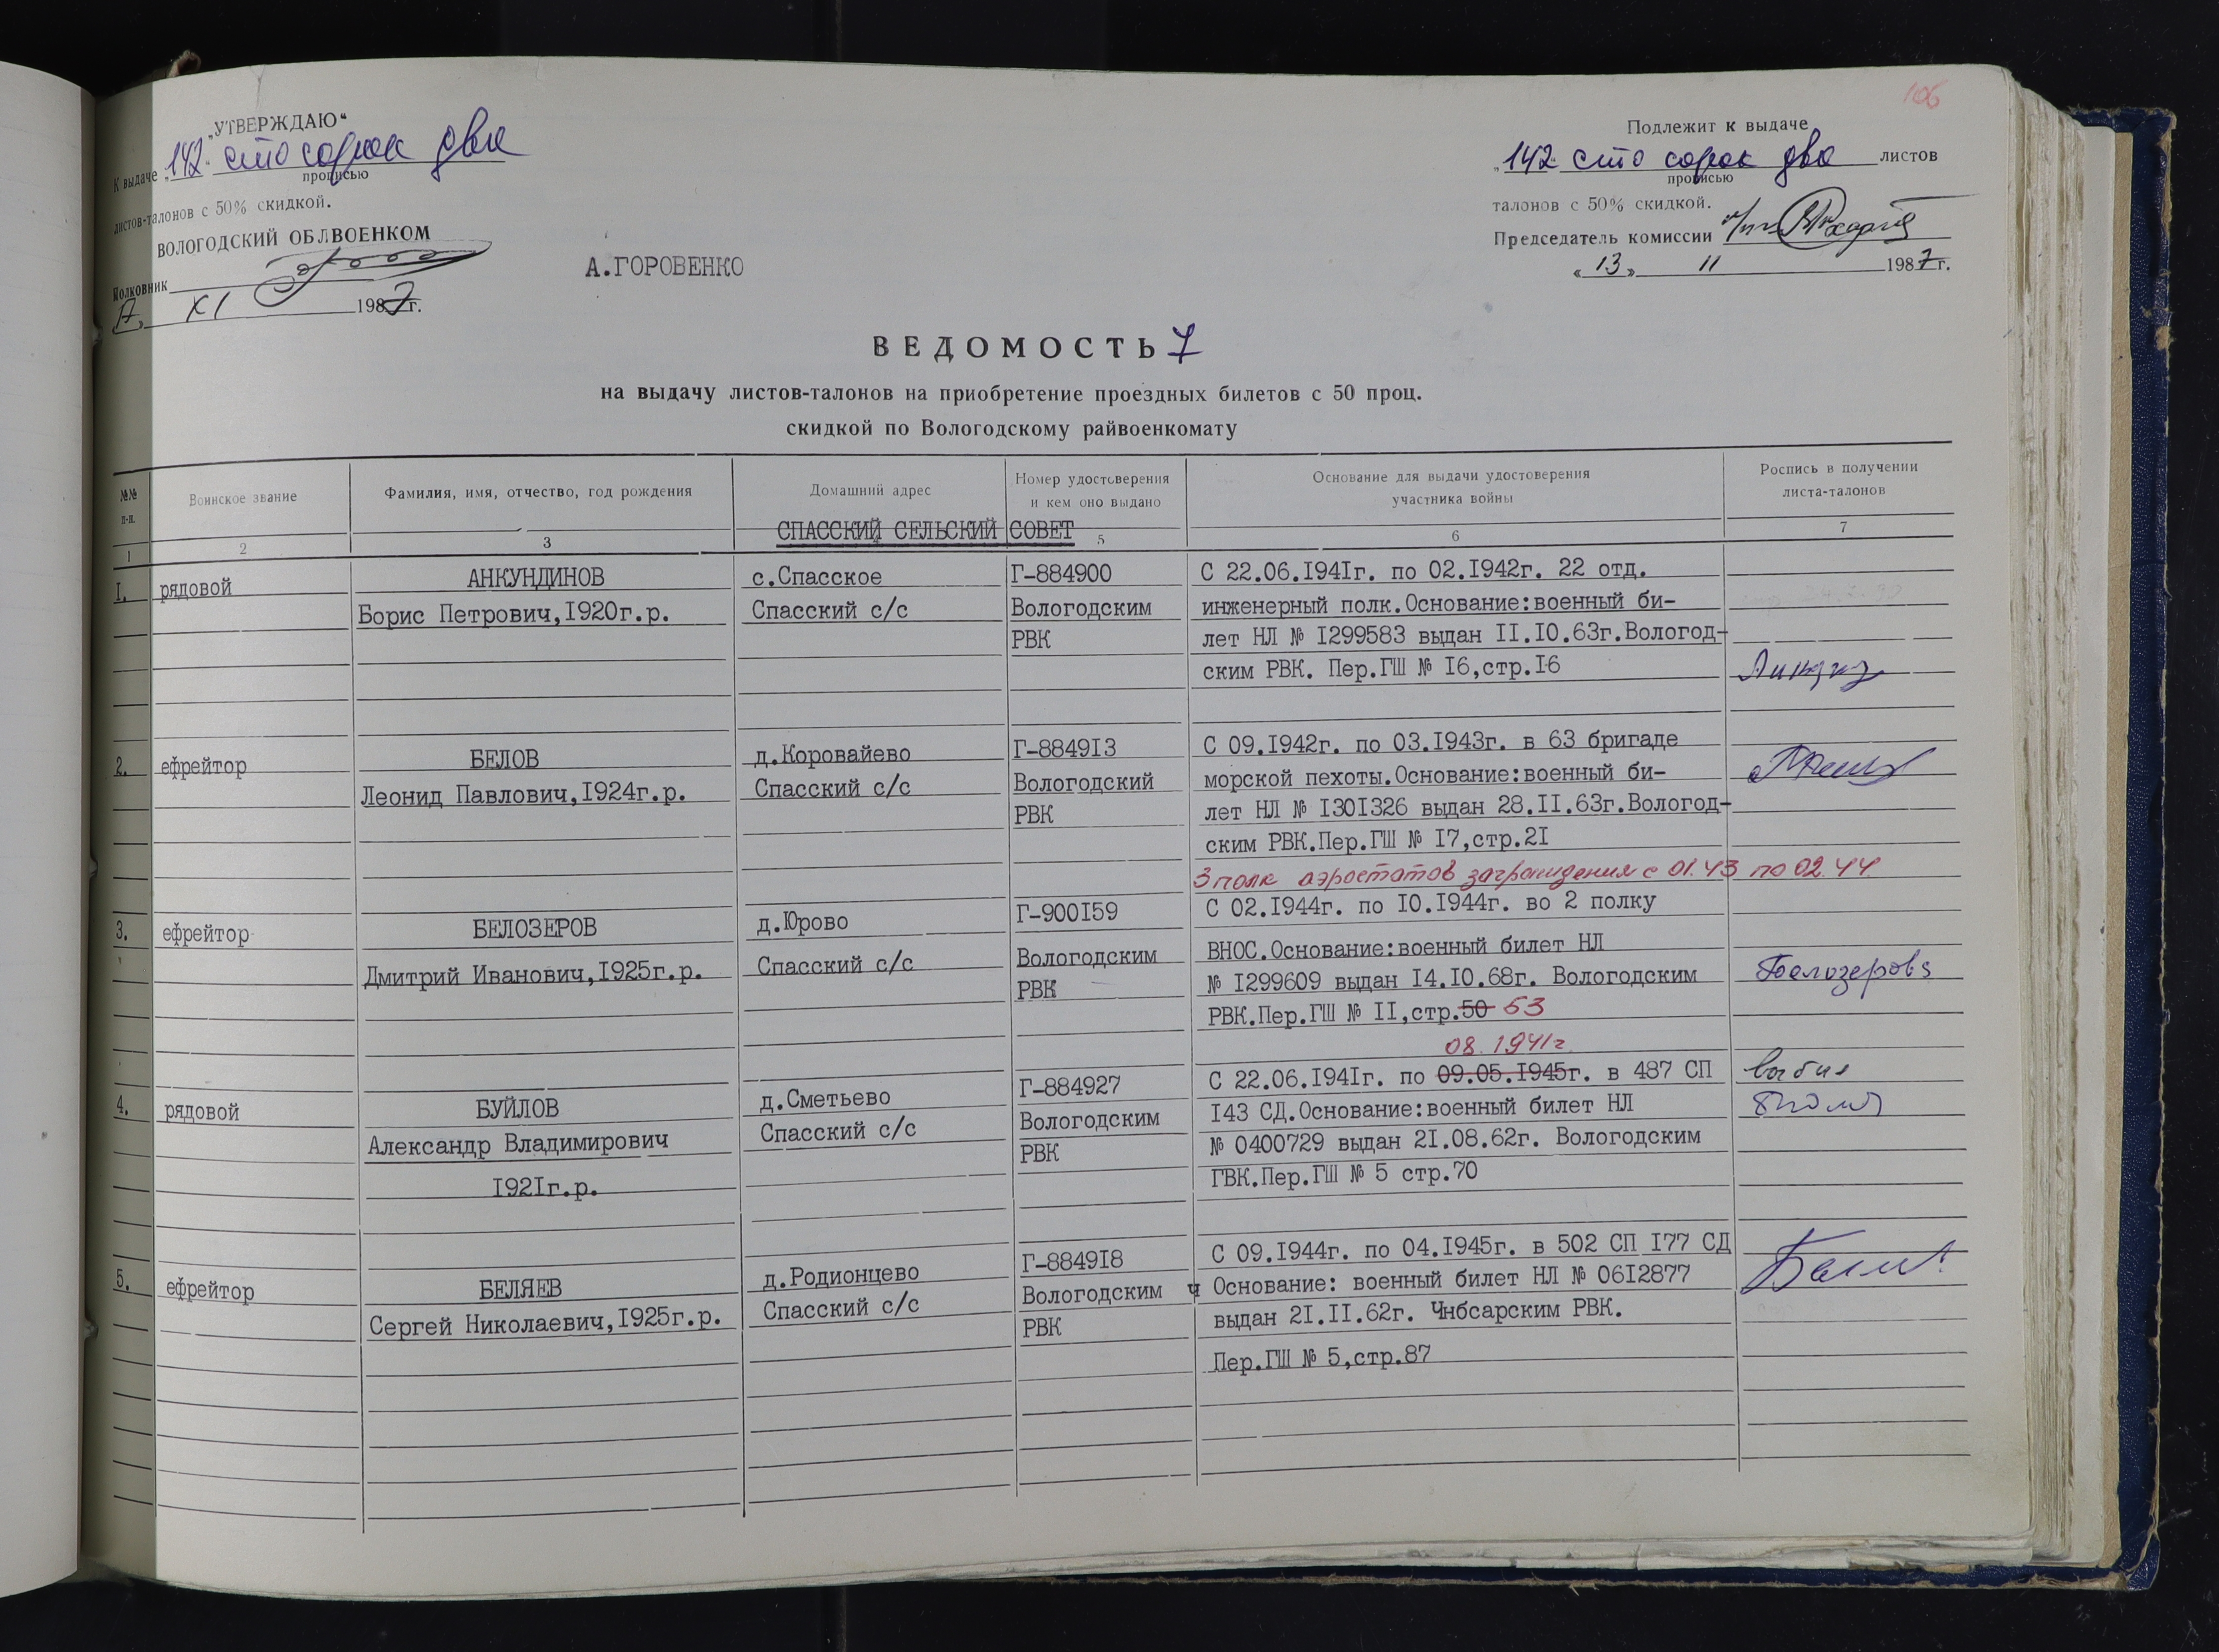 106
„УТВЕРЖДАЮ“
К выдаче „142“ сто сорок два
прописью
листов-талонов с 50% скидкой.
ВОЛОГОДСКИЙ ОБЛВОЕНКОМ
Полковник
А.ГОРОВЕНКО
XI 1987г.
Подлежит к выдаче
„142“ сто сорок два листов
прописью
талонов с 50% скидкой.
Председатель комиссии
«13» 11 1987г.
ВЕДОМОСТЬ 7
на выдачу листов-талонов на приобретение проездных билетов с 50 проц.
скидкой по Вологодскому райвоенкомату
№№ п-п.
Воинское звание
Фамилия, имя, отчество, год рождения
Домашний адрес
Номер удостоверения
и кем оно выдано
Основание для выдачи удостоверения
участника войны
Роспись в получении
листа-талонов
СПАССКИЙ СЕЛЬСКИЙ СОВЕТ
1 2 3 4 5 6 7
I. рядовой
АНКУНДИНОВ
Борис Петрович,I920г.р.
с.Спасское
Спасский с/с
Г-884900
Вологодским
РВК
С 22.06.I94Iг. по 02.I942г. 22 отд.
инженерный полк.Основание:военный би-
лет НЛ № I299583 выдан II.I0.63г.Вологод-
ским РВК. Пер.ГШ № I6,стр.I6
2. ефрейтор
БЕЛОВ
Леонид Павлович,I924г.р.
д.Коровайево
Спасский с/с
Г-8849I3
Вологодский
РВК
С 09.I942г. по 03.I943г. в 63 бригаде
морской пехоты.Основание:военный би-
лет НЛ № I30I326 выдан 28.II.63г.Вологод-
ским РВК.Пер.ГШ № I7,стр.2I
3 полк аэростатов заграждения с 01.43 по 02.44
3. ефрейтор
БЕЛОЗЕРОВ
Дмитрий Иванович,I925г.р.
д.Юрово
Спасский с/с
Г-900I59
Вологодским
РВК
С 02.I944г. по I0.I944г. во 2 полку
ВНОС.Основание:военный билет НЛ
№ I299609 выдан I4.I0.68г. Вологодским
РВК.Пер.ГШ № II,стр.50 53
08.1941г.
4. рядовой
БУЙЛОВ
Александр Владимирович
I92Iг.р.
д.Сметьево
Спасский с/с
Г-884927
Вологодским
РВК
С 22.06.I94Iг. по 09.05.I945г. в 487 СП
I43 СД.Основание:военный билет НЛ
№ 0400729 выдан 2I.08.62г. Вологодским
ГВК.Пер.ГШ № 5 стр.70
выбыл
5. ефрейтор
БЕЛЯЕВ
Сергей Николаевич,I925г.р.
д.Родионцево
Спасский с/с
Г-8849I8
Вологодским
РВК
С 09.I944г. по 04.I945г. в 502 СП I77 СД
ч Основание: военный билет НЛ № 06I2877
выдан 2I.II.62г. Чнбсарским РВК.
Пер.ГШ № 5,стр.87